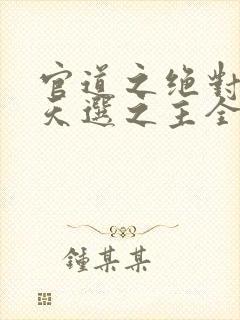 官道之绝對
天選之主全
鍾某某